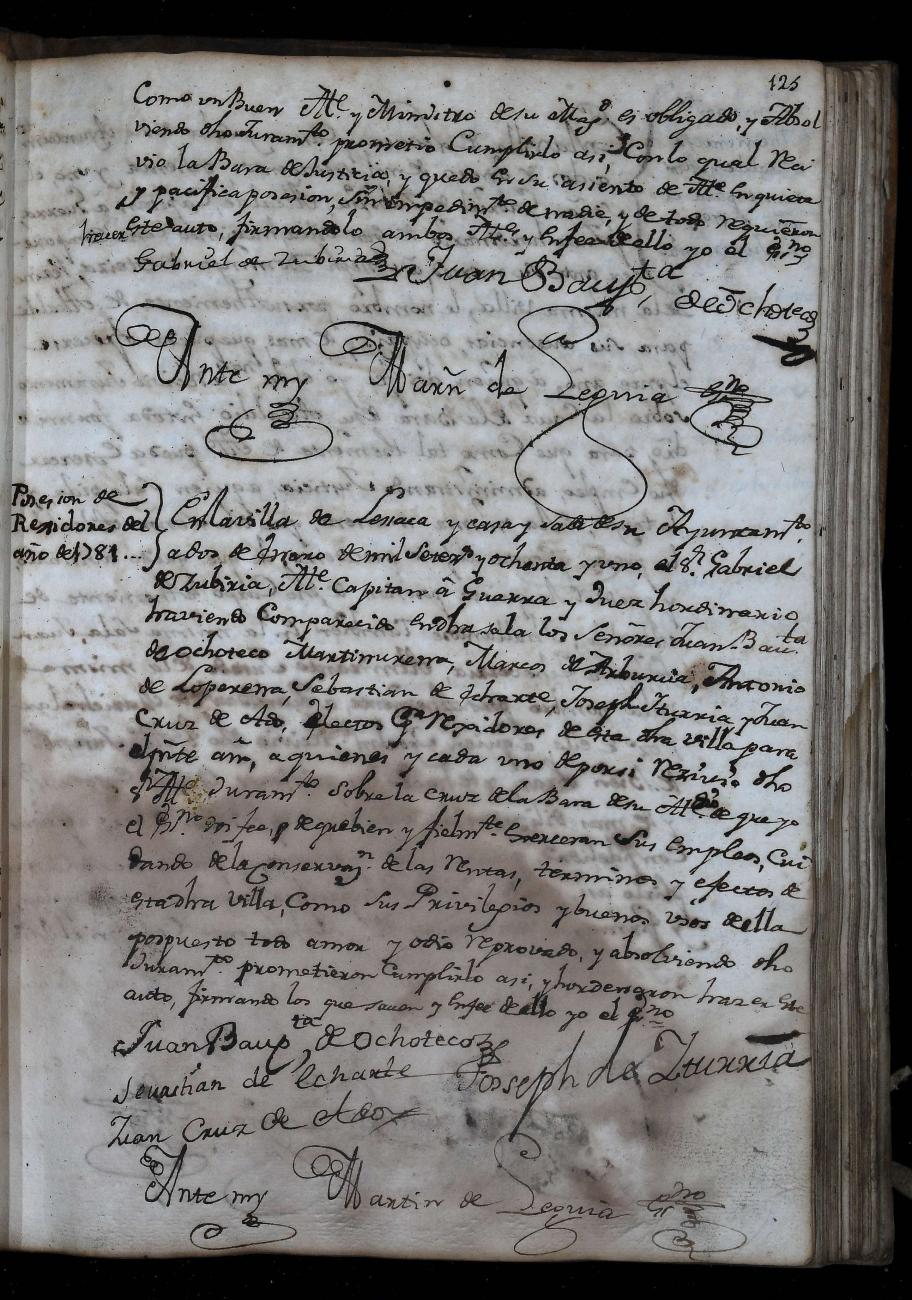 125
Como un Buen Alle. y Ministro de su Magd. es obligado, y Absol
viendo dho Juramto. prometio Cumplirlo asi, Con lo qual Reci
vio la Bara de Justicia, y quedo en su asiento de Alle. en quieta
y pacifica posesion, sin impedimto. de nadie, y de todo requirieron
hacer este auto, firmandolo ambos Alles. y en fee de ello yo el Esno.
Gabriel de Zubiria Juan Baupta.
de Ochoteco
Ante my Martn de Leguia Esno
Posesion de
Regidores del
año de 1781...
En la villa de Lesaca y casa y sala de su Ayuntamto.
a dos de Enero de mil setecs. y ochenta y uno, el Sr. Gabriel
de Zubiria, Alle. Capitan â Guerra y Juez hordinario
haviendo Comparecido en dha sala los Señores Juan Bauta.
de Ochoteco Martimurena, Marcos de Arburua, Antonio
de Loperena, Sebastian de Echarte, Joseph Iturria y Juan
Cruz de Ado, electos Regidores de esta dha villa para
el pnte año, a quienes y cada uno de por si reziuio dho
Sr Alle. Juramto. sobre la cruz de la Bara de su Md. de que yo
el Esno. doi fee, de que bien y fielmte. Exerceran sus empleos, Cui
dando de la Conservazn. de las Rentas, terminos y efectos de
esta dha villa, Como sus Privilegios y buenos usos de ella
pospuesto todo amor y odio reprovado, y absolviendo dho
Juramto. prometieron Cumplirlo asi, y hordenaron hazer este
auto, firmando los que saven y en fee de ello yo el Esno
Juan Baupta. de Ochoteco
Sevastian de Echarte Joseph de Iturria
Juan Cruz de Ado
Ante my Martin de Leguia Esno